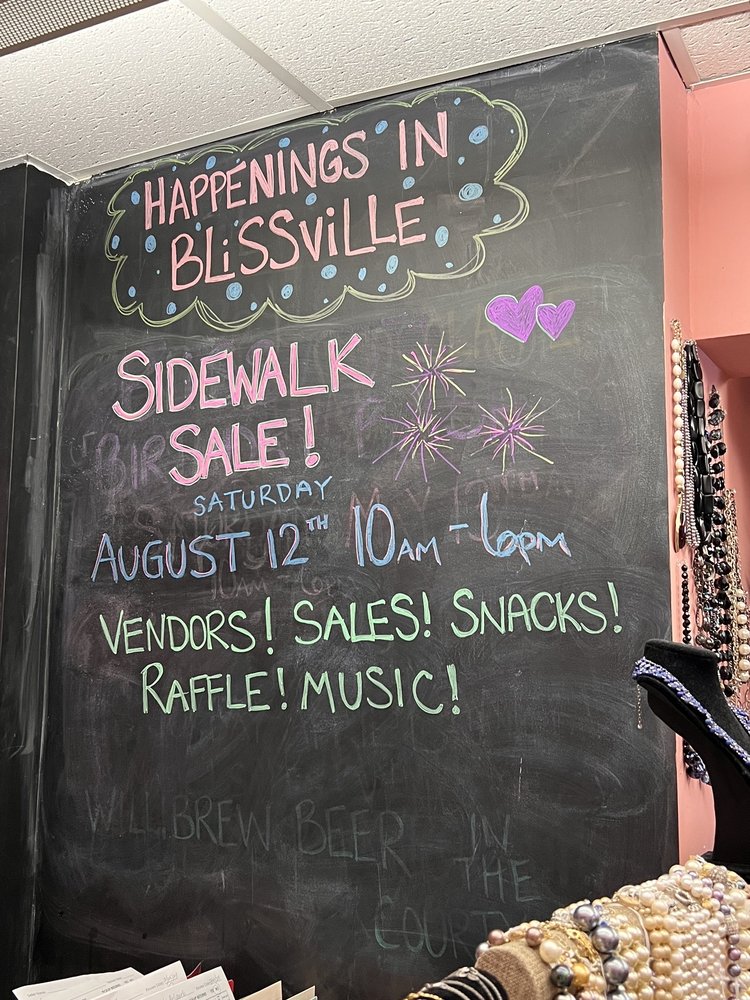 HAPPENINGS IN
BLiSSViLLE
SIDEWALK
SALE!
SATURDAY
AUGUST 12TH 10AM - 6pm
VENDORS! SALES! SNACKS!
RAFFLE! MUSIC!
WILL BREW BEER IN
THE